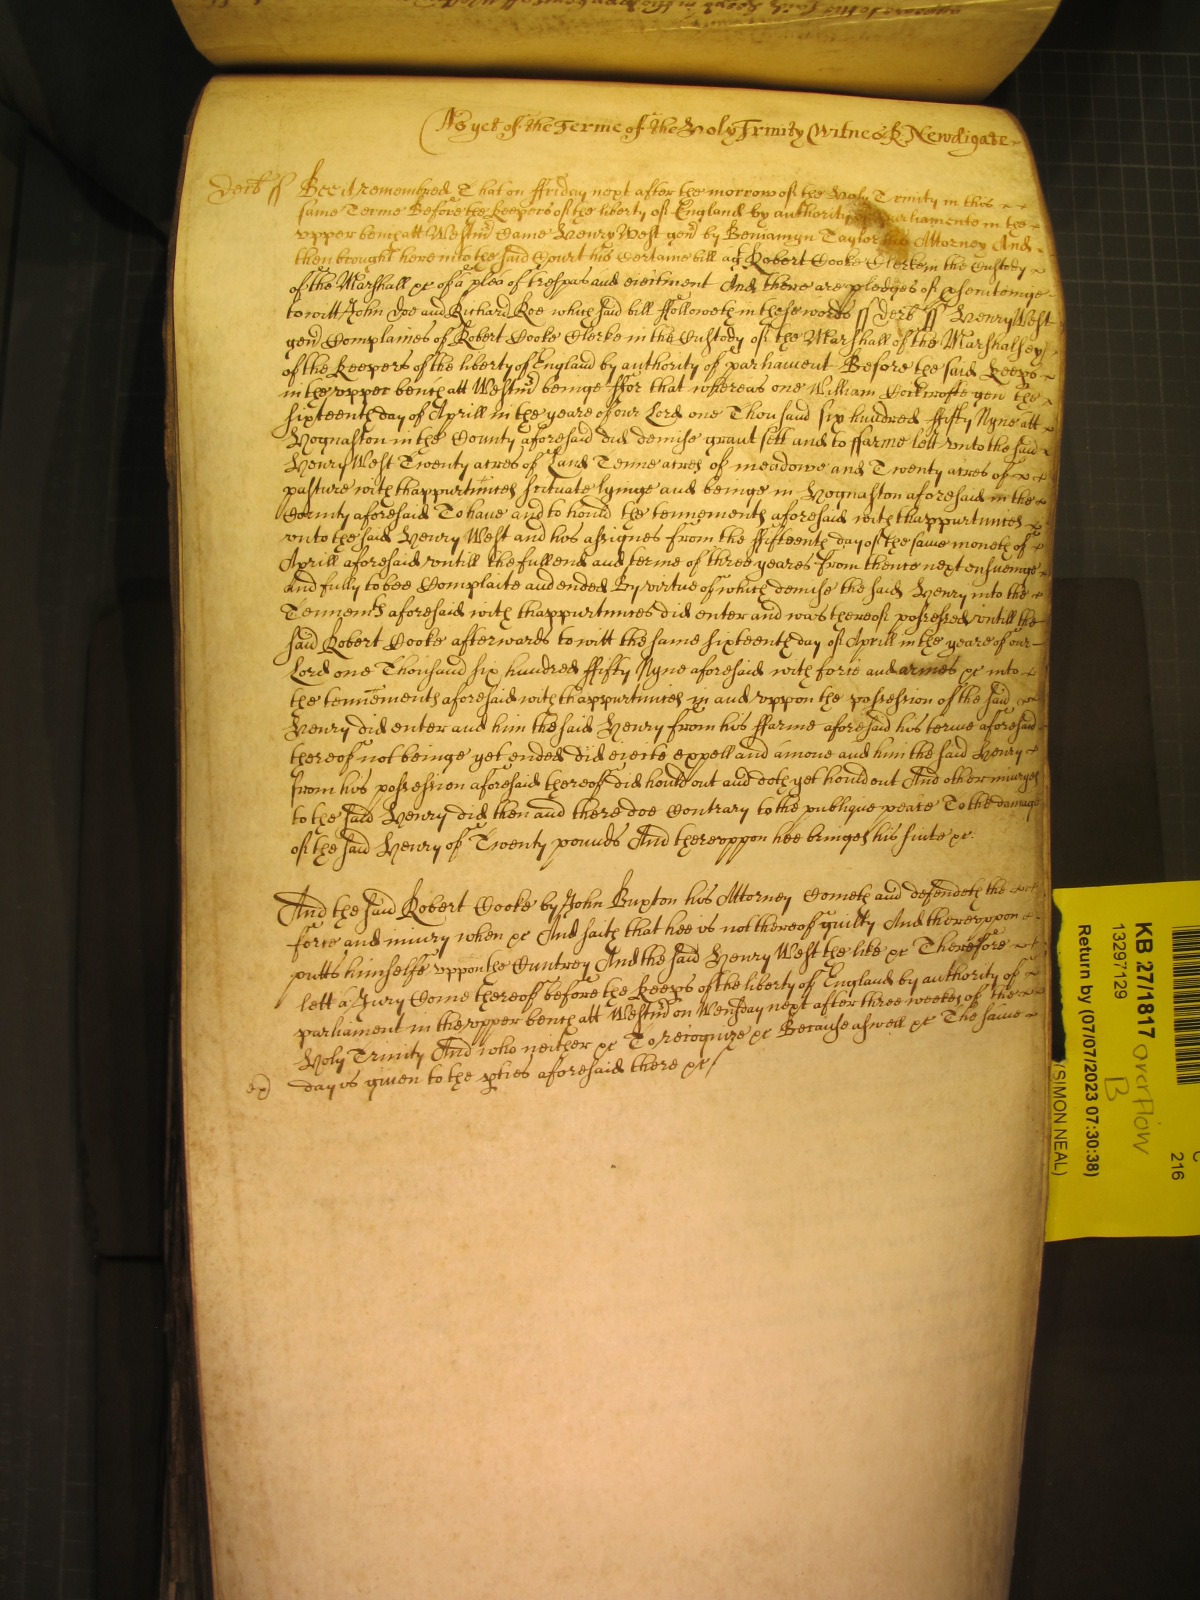 As yet of the Terme of the Holy Trinity Witnes R Newdigate
Derb ss Bee it remembred That on ffriday next after the morrow of the Holy Trinity in this
same Terme Before the keepers of the liberty of England by authority of parliamente in the
vpper bench att Westmr Came Henry West gent by Beniamyn Taylor his Attorney And
then brought here into the said Court his Certaine bill agt Robert Cooke Clerke in the Custody
of the Marshall &c of a plea of trespas and eiectment And there are pledges of psecutinge
to witt John Doe and Richard Roe which said bill ffolloweth in these words ss Derb ss Henry West
gent Complaines of Robert Cooke Clerke in the Custody of the Marshall of the Marshalsey
of the keepers of the liberty of England by authority of parliament Before the said keeps
in the vpper bench att Westmr beinge ffor that whereas one William gen the
sixteenth day of Aprill in the yeare of our Lord one Thousand six hundred ffifty Nyne att
Hognaston in the County aforesaid did demise graunt sett and to ffarme lett vnto the said
Henry West Twenty acres of Land Tenne acres of meadowe and Twenty acres of
pasture with thappurtinces scituate lyinge and beinge in Hognaston aforesaid in the
County aforesaid To haue and to hould the tennements aforesaid with thappurtinces
vnto the said Henry West and his assignes from the ffifteenth day of the same moneth of
Aprill aforesaid vntill the full end and terme of three yeares from thence next ensueinge
and fully to bee Complaite and ended By virtue of which demise the said Henry into the
Tennemts aforesaid with thappurtinces did enter and was thereof possessed vntill the
said Robert Cooke afterwards to witt the same sixteenth day of Aprill in the yeare of our
Lord one Thousand six hundred ffifty Nyne aforesaid with force and armes &c into
the tennements aforesaid with thappurtinces in and vppon the possession of the said
Henry did enter and him the said Henry from his ffarme aforesaid his terme aforesaid
thereof not beinge yet ended did eiecte expell and amoue and him the said Henry
from his possession aforesaid thereof did hould out and doth yet hould out And other iniuryes
to the said Henry did then and there doe Contrary to the publique peace To the damage
of the said Henry of Twenty pounds And therevppon hee bringes his suite &c
And the said Robert Cooke by John Buxton his Attorney Cometh and defendeth the
force and iniury when &c And saith that hee is not thereof guilty And therevppon
putts himselfe vppon the Cuntrey And the said Henry West the like &c Therefore
lett a Jury Come thereof before the keeps of the liberty of England by authority of
parliament in the vpper bench att Westmr on Wensday next after three weekes of the
Holy Trinity And who neither &c To recognize &c Because aswell &c The same
day is given to the pties aforesaid there &c
KB 27/1817 overflow
13297129 B
Return by (07/07/2023 07:30:38)
(SIMON NEAL)
216